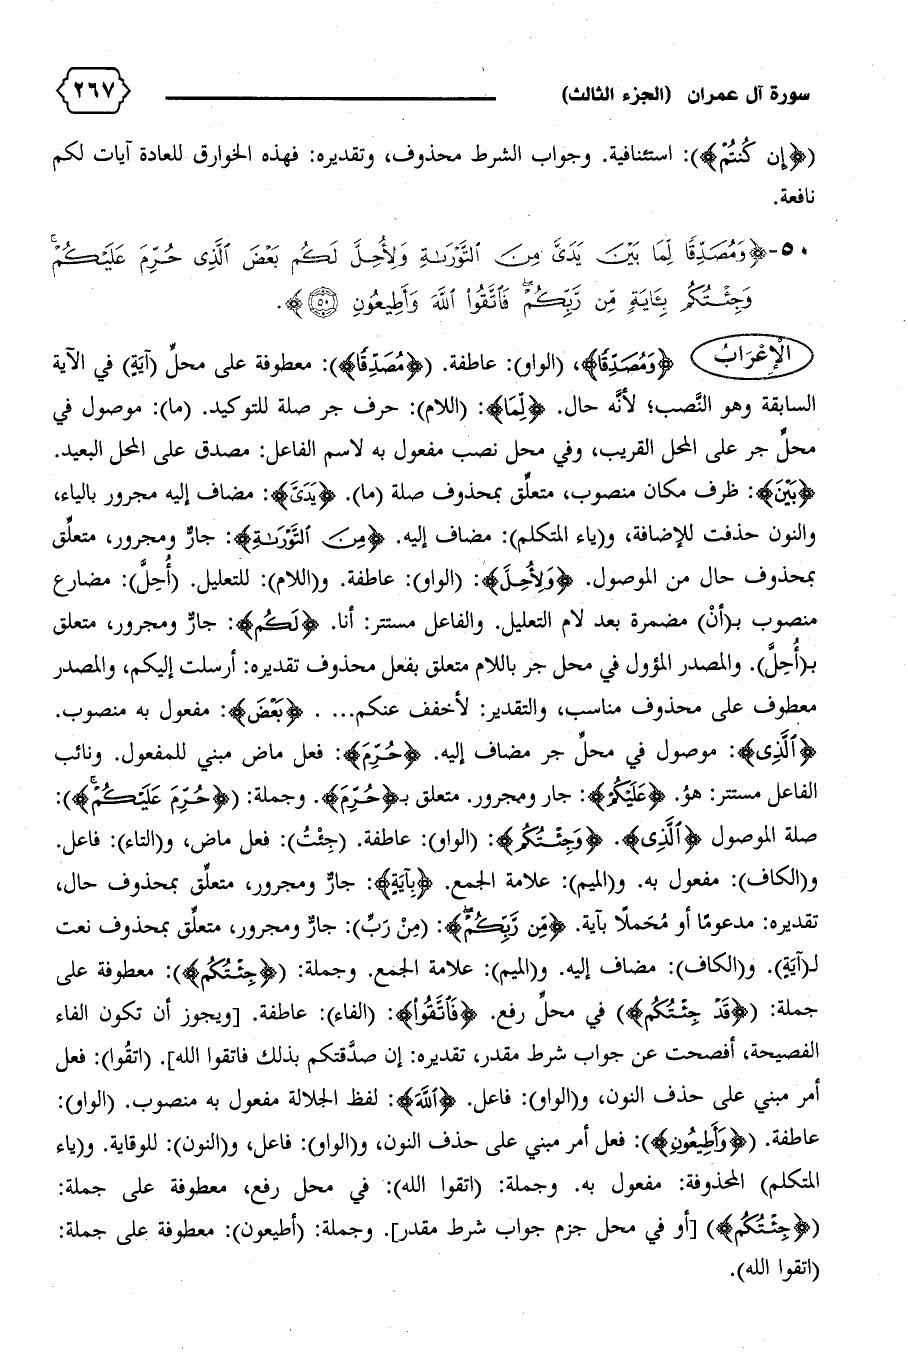 سورة آل عمران (الجزء الثالث) ٢٦٧
(﴿إِن كُنتُمْ﴾): استئنافية. وجواب الشرط محذوف، وتقديره: فهذه الخوارق للعادة آيات لكم
نافعة.
٥٠- ﴿وَمُصَدِّقًا لِّمَا بَيْنَ يَدَيَّ مِنَ ٱلتَّوْرَىٰةِ وَلِأُحِلَّ لَكُم بَعْضَ ٱلَّذِى حُرِّمَ عَلَيْكُمْ ۚ
وَجِئْتُكُم بِـَٔايَةٍ مِّن رَّبِّكُمْ ۖ فَٱتَّقُوا۟ ٱللَّهَ وَأَطِيعُونِ ٥٠﴾.
الإِعْرَابُ ﴿وَمُصَدِّقًا﴾، (الواو): عاطفة. (﴿مُصَدِّقًا﴾): معطوفة على محلِّ (آيَةٍ) في الآية
السابقة وهو النَّصب؛ لأنَّه حال. ﴿لِّمَا﴾: (اللام): حرف جر صلة للتوكيد. (ما): موصول في
محلِّ جر على المحل القريب، وفي محل نصب مفعول به لاسم الفاعل: مصدق على المحل البعيد.
﴿بَيْنَ﴾: ظرف مكان منصوب، متعلِّق بمحذوف صلة (ما). ﴿يَدَيَّ﴾: مضاف إليه مجرور بالياء،
والنون حذفت للإضافة، و(ياء المتكلم): مضاف إليه. ﴿مِنَ ٱلتَّوْرَىٰةِ﴾: جارٌّ ومجرور، متعلِّق
بمحذوف حال من الموصول. ﴿وَلِأُحِلَّ﴾: (الواو): عاطفة. و(اللام): للتعليل. (أُحِلَّ): مضارع
منصوب بـ(أنْ) مضمرة بعد لام التعليل. والفاعل مستتر: أنا. ﴿لَكُم﴾: جارٌّ ومجرور، متعلق
بـ(أُحِلَّ). والمصدر المؤول في محل جر باللام متعلق بفعل محذوف تقديره: أرسلت إليكم، والمصدر
معطوف على محذوف مناسب، والتقدير: لأخفف عنكم... . ﴿بَعْضَ﴾: مفعول به منصوب.
﴿ٱلَّذِى﴾: موصول في محلِّ جر مضاف إليه. ﴿حُرِّمَ﴾: فعل ماض مبني للمفعول. ونائب
الفاعل مستتر: هوُ. ﴿عَلَيْكُمْ﴾: جار ومجرور. متعلق بـ﴿حُرِّمَ﴾. وجملة: (﴿حُرِّمَ عَلَيْكُمْ ۚ﴾):
صلة الموصول ﴿ٱلَّذِى﴾. ﴿وَجِئْتُكُم﴾: (الواو): عاطفة. (جِئْتُ): فعل ماض، و(التاء): فاعل.
و(الكاف): مفعول به. و(الميم): علامة الجمع. ﴿بِآيَةٍ﴾: جارٌّ ومجرور، متعلِّق بمحذوف حال،
تقديره: مدعومًا أو مُحَملًا بآية. ﴿مِّن رَّبِّكُمْ ۖ﴾: (مِنْ رَبِّ): جارٌّ ومجرور، متعلِّق بمحذوف نعت
لـ(آيَةٍ). و(الكاف): مضاف إليه. و(الميم): علامة الجمع. وجملة: (﴿جِئْتُكُم﴾): معطوفة على
جملة: (﴿قَدْ جِئْتُكُم﴾) في محلِّ رفع. ﴿فَٱتَّقُوا۟﴾: (الفاء): عاطفة. [ويجوز أن تكون الفاء
الفصيحة، أفصحت عن جواب شرط مقدر، تقديره: إن صدَّقتكم بذلك فاتقوا الله]. (اتقُوا): فعل
أمر مبني على حذف النون، و(الواو): فاعل. ﴿ٱللَّهَ﴾: لفظ الجلالة مفعول به منصوب. (الواو):
عاطفة. (﴿وَأَطِيعُونِ﴾): فعل أمر مبني على حذف النون، و(الواو): فاعل، و(النون): للوقاية. و(ياء
المتكلم) المحذوفة: مفعول به. وجملة: (اتقوا الله): في محل رفع، معطوفة على جملة:
(﴿جِئْتُكُم﴾) [أو في محل جزم جواب شرط مقدر]. وجملة: (أطيعون): معطوفة على جملة:
(اتقوا الله).